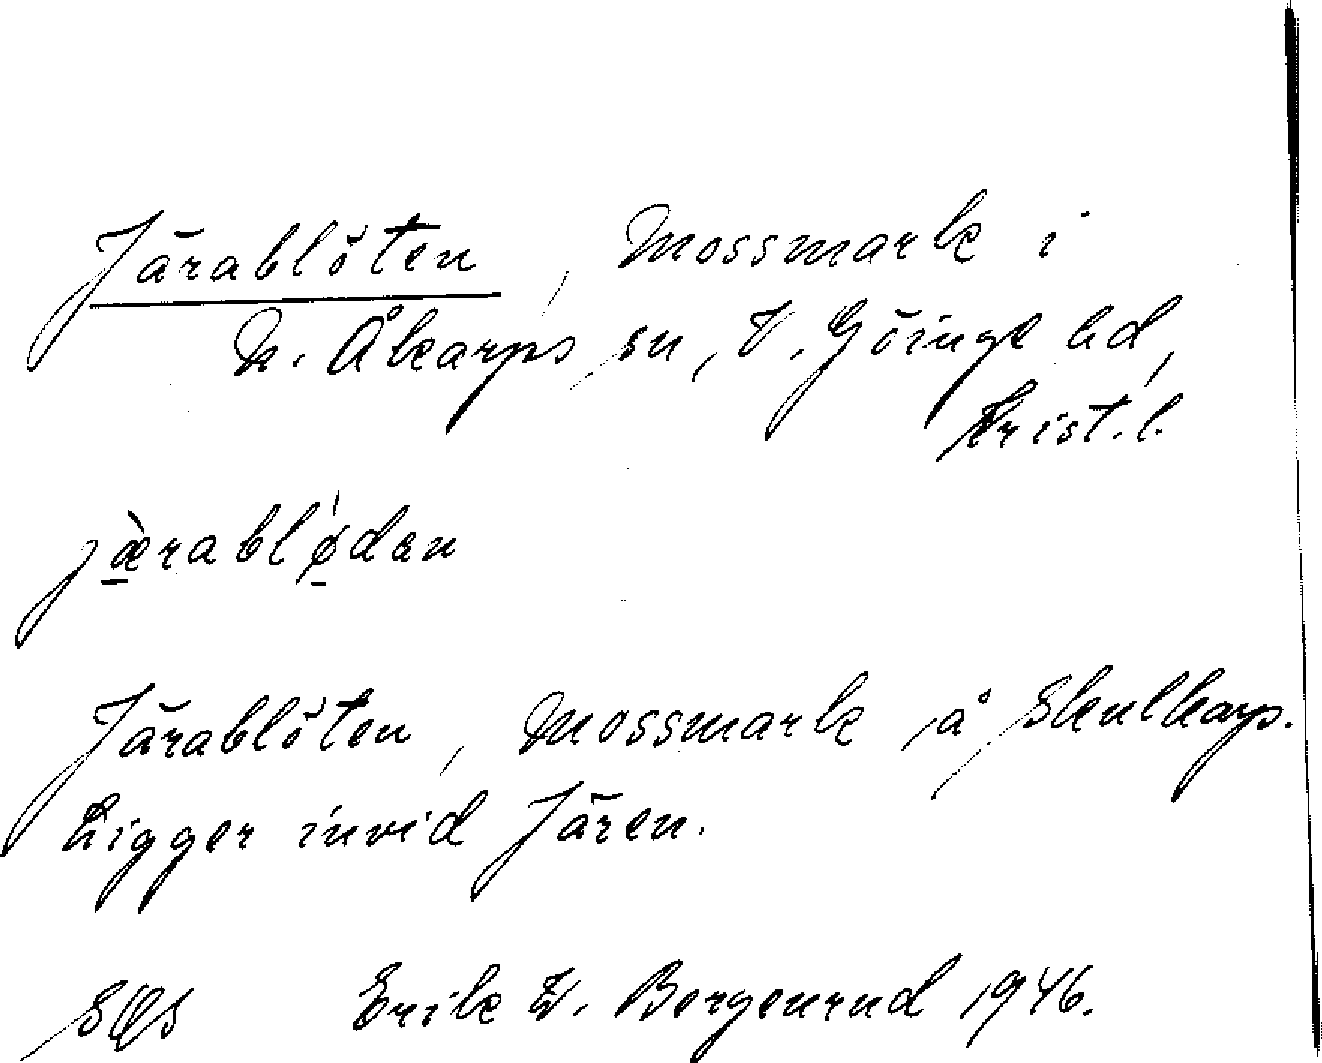 Järablöten, Mossmark i
N. Åkarps sn, V. Göinge hd,
Krist. l.
jæ̀rablǿdan
Järablöten, Mossmark å Skulkarp.
Ligger invid Jären.
Erik W. Bergenrud 1946.